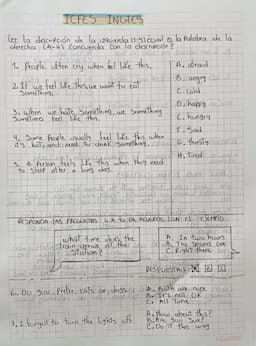 ICFES INGLES
Lee la descripción de la izquierda (1-5) ¿cual es la Palabra de la
derecha (A-H) concuerda con la descripción?
1. People often cry when feel like this.
A. afraid
B. angry
2. If we feel like this, we want to eat
something.
C. cold
D. happy
3. when we hate something, we something
sometimes feel like this.
E. hungry
F. Sad
4. Some People usually feel like this when
it's hot, and need to drink something.
G. thirsty
5. A Person feels like this when they need
to sleep after a long day.
H. Tired
RESPONDA LAS PREGUNTAS 6 A 10 DE ACUERDO CON EL EJEMPLO
what time does the
train arrive at the
station?
A. In two hours
B. The second one
C. Right there
RESPUESTAS: A B C
6. Do you Prefer cats or dogs
A. Both are nice
B. It's not OK
C. All Time
7. I forgot to turn the lights off.
A. How about this?
B. Are you sure
C. Do it this way